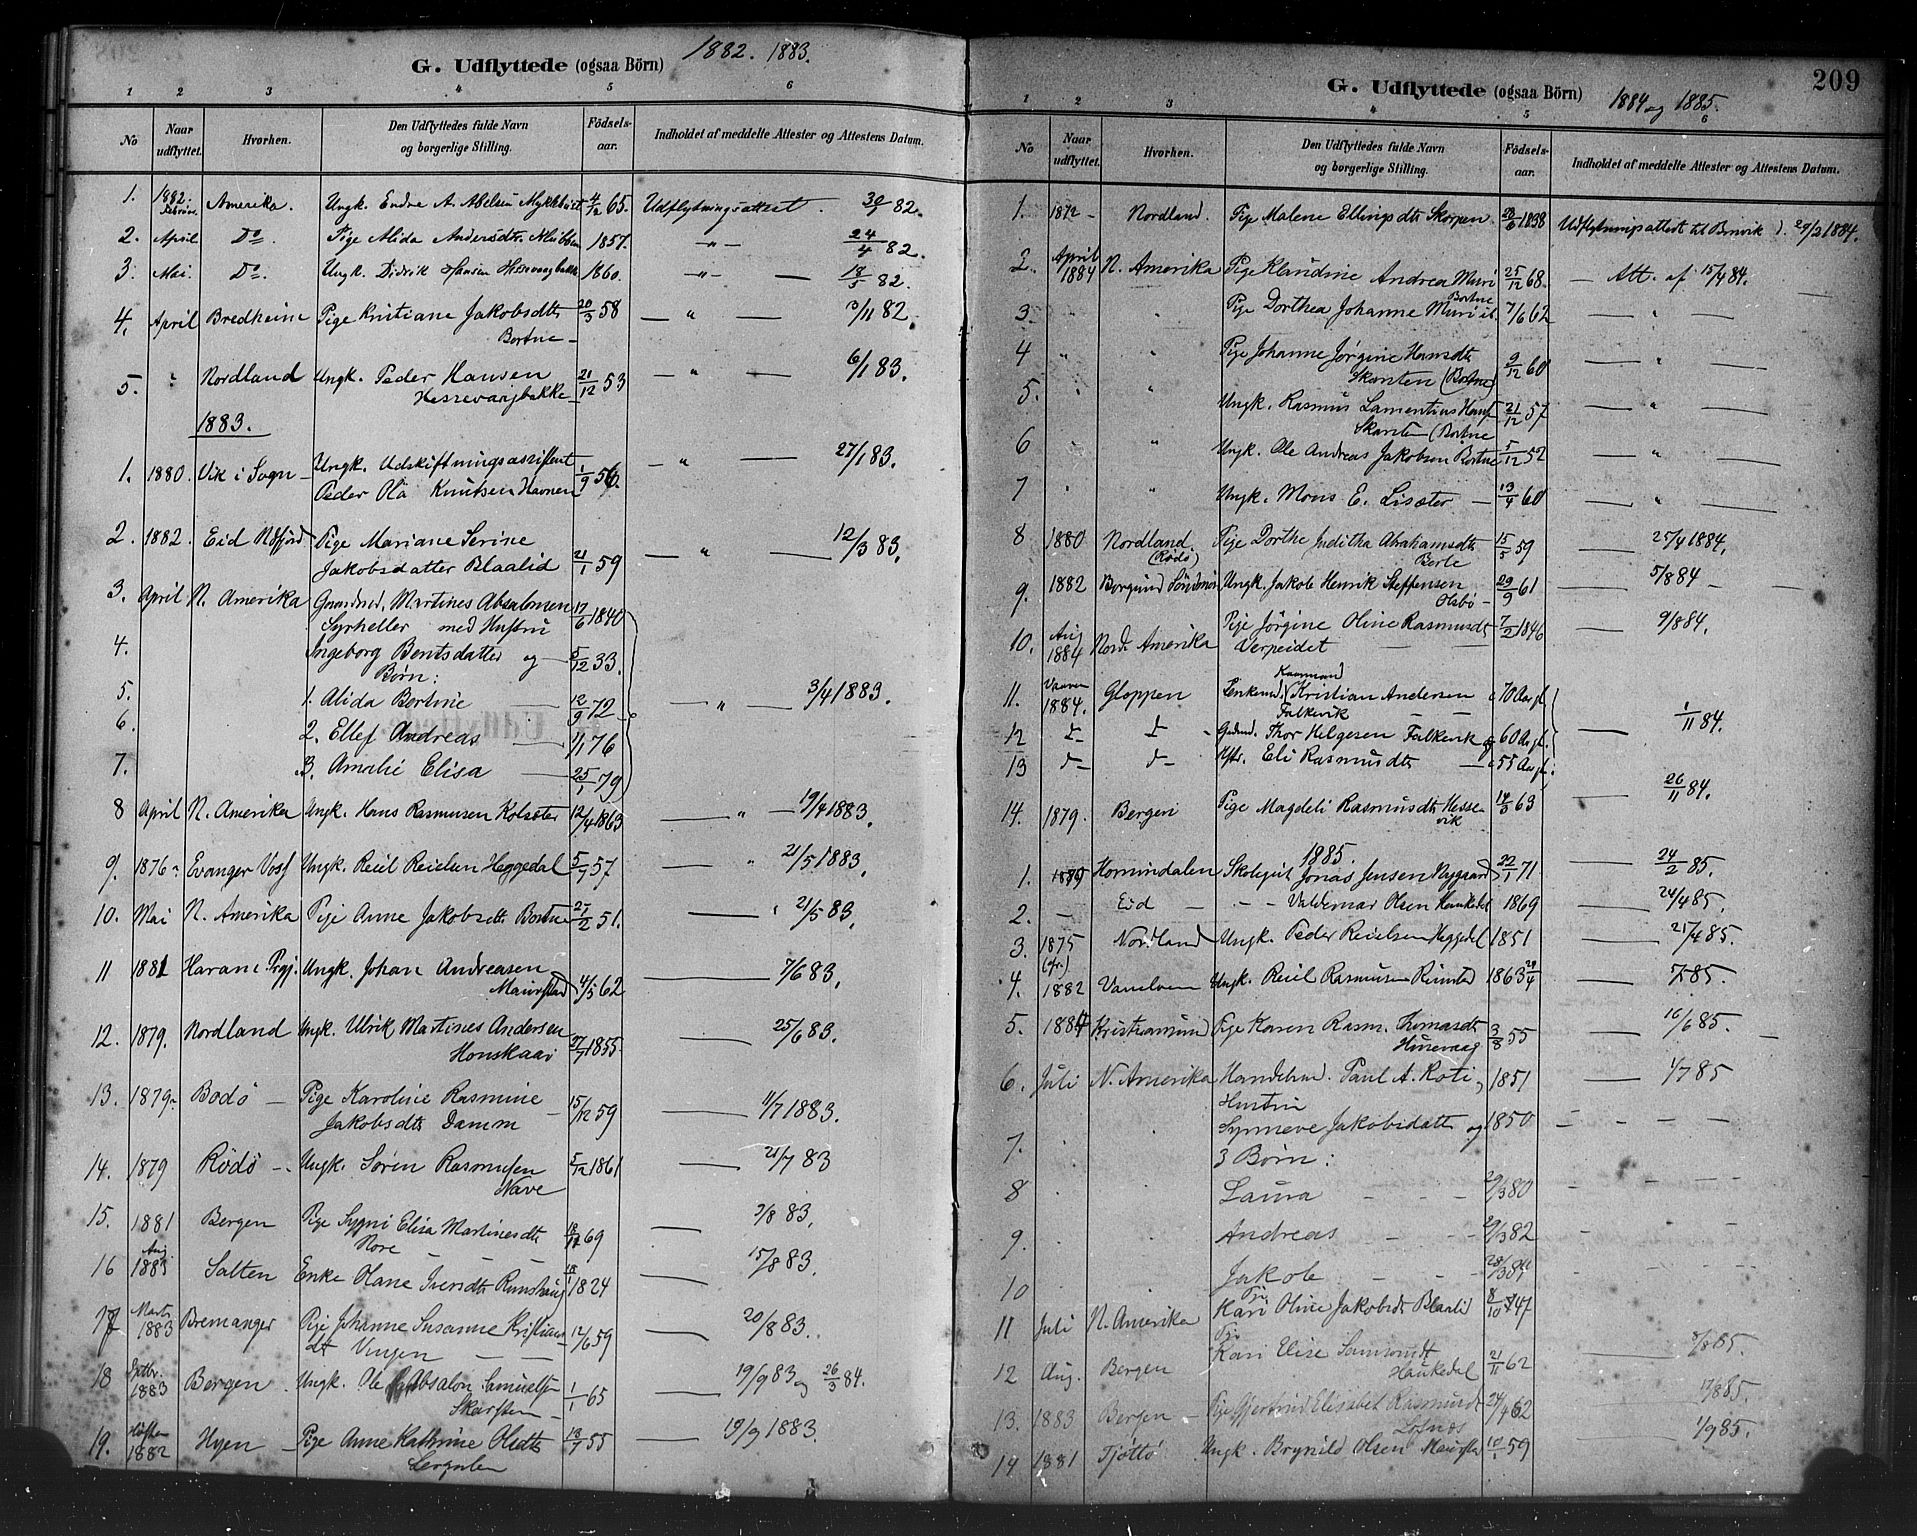 G. Udflyttede (ogsaa Börn) 1882. 1883.
1 2 3 4 5 6
No Naar udflyttet. Hvorhen. Den Udflyttedes fulde Navn og borgerlige Stilling. Födsels-aar. Indholdet af meddelte Attester og Attestens Datum.
1. 1882. Februar Amerika. Ungk. Endre A. Abelsen Myklebust 4/12 65. Udflytningsattest. 30/1 82.
2. April Do. Pige Alida Andersdtr. 1857. -"- 24/4 82.
3. Mai. Do. Ungk. Didrik Hansen Hessevaagbakke 1860. -"- 18/5 82.
4. April Bredheim Pige Kristiane Jakobsdtr 20/3 58 — " — 3/11 82.
Bortne -
5. " Nordland Ungk. Peder Hansen 21/12 53 — " — 6/1 83.
Hessevaagbakke -
1883.
1. 1880. Vik i Sogn - Ungk. Udskiftningsassistent 1/9 56. — " — 27/1 83.
Peder Ola Knutsen Havnen
2. 1882. Eid Ndfjord Pige Mariane Serine 21/1 59 — " — 12/3 83.
Jakobsdatter Blaalid
3. April N. Amerika Grundmd. Martines Absalomsen 17/6 1840
Syrheller med Hustru
4. Ingeborg Bentsdatter og - 5/12 33.
Børn:
5. 1. Alida Bertine 12/9 72 — " — 3/4 1883.
6. 2. Ellef Andreas 1/1 76
7. 3. Amalie Elisa 25/1 79
8 April N. Amerika Ungk. Hans Rasmusen Kolsæter 12/4 1863 — " — 19/4 1883.
9. 1876 - Evanger Voss Ungk. Reiel Reielsen Heggedal 5/9 57 — " 21/5 1883.
10. Mai N. Amerika Pige Anne Jakobsdtr Bortne 27/2 51. — " 21/5 83.
11 1881 Haram Prgj. Ungk. Johan Andreasen 4/5 62 — 7/6 83.
Maurstad
12. 1879. Nordland Ungk. Ulrik Martines Andersen 27/7 1855. — 25/6 83.
Honskaar
13. 1879 - Bodö - Pige Karoline Rasmine 15/12 59 — 11/7 1883.
Jakobsdtr Damm
14. 1879 Rödö - Ungk. Søren Rasmusen 5/12 1861 — 21/7 83
Nave
15. 1881 Bergen Pige Sygni Elisa Martinesdtr 69 — 3/8 83.
16 Aug. 1883 Salten Enke Olane Iversdtr 18/1 1824 — 15/8 83.
17 Marts 1883 Bremanger Pige Johanne Susanne Kristians- 12/6 59 — 20/8 83.
dt Vingen
18 Septbr. 1883 Bergen Ungk. Ole Absalon Samuelsen 1/1 65 — 19/9 83 og 26/3 84.
Skarsten -
19. Høsten 1882 Hyen - Pige Anne Kathrine Olsdtr 18/7 55 — 19/9 1883.
209
G. Udflyttede (ogsaa Börn) 1884 og 1885.
1 2 3 4 5 6
No Naar udflyttet. Hvorhen. Den Udflyttedes fulde Navn og borgerlige Stilling. Födsels-aar. Indholdet af meddelte Attester og Attestens Datum.
1. 1872 - Nordland. Pige Malene Ellingsdtr Skorpen. 20/6 1838 Udflytningsattest til 29/2 1884.
2. April 1884 N. Amerika Pige Klaudine Andrea Muri 25/12 68. — Att. af 15/4 84.
3. Pige Dorthea Johanne Muri Bortne 7/6 62 — " —
4 " " Pige Johanne Jørgine Hansdtr 9/12 60 — " —
Skarsten (Bortne)
5. " " Ungk. Rasmus Lamentius Hans 21/12 57 — " —
Skarsten (Bortne
6 " " Ungk. Ole Andreas Jakobsen Bortne 5/12 52 — " —
7 " " Ungk. Mons E. Lisæter — 13/4 60 — " —
8 1880 Nordland (Rödö) Pige Dorthe Juditha Abrahamsdtr 15/5 59 — 25/4 1884.
Berle
9. 1882 Borgund Søndmør Ungk. Jakob Henrik Steffensen 29/9 61 — 5/8 84 -
Olsbø -
10. Aug 1884 Nord. Amerika Pige Jörgine Oline Rasmusdt 7/2 1846 — 9/8 84.
Verpeidet
11. Vaaren 1884. Gloppen Kristian Andersen 70 Aar gl.
Falkevik
12 Thor Helgesen Falkevik og 60 Aar gl. — 1/11 84.
13 Hstr. Eli Rasmusdtr 55 Aar gl.
14. 1879. Bergen Pige Magdeli Rasmusdtr Hesse- 14/3 63 — 26/11 84.
vik
1885.
1. 1885 Hornindalen Skolegut Jonas Jensen Nygaard 22/1 71. — 24/2 85.
2. — Eid — - - Valdemar Olsen Haukedal 1869 — 24/4 85.
3. 1875 Nordland Ungk. Peder Reielsen Heggedal 1851 — 21/4 85.
4. 1882 Vanelven Ungk. Reiel Rasmusen Rimstad 1863 20/4 — 7/5 85.
5. 1884 Kristiansund Pige Karen Rasm. Thomasdtr 3/8 55 — 16/6 85.
Husevaag
6. Juli N. Amerika Handelsmd. Paul A. Roti, 1851 — 1/7 85
Hustru
7. Synneve Jakobsdatt og 1850
3 Børn:
8 Laura 80
9. Andreas 82
10 Jakob 84
11 Juli N. Amerika Pige Kari Oline Jakobsdt Blaalid 8/10 47
12 Aug. Bergen Pige Kari Elise Samsondt 21/11 62 — 8/8 85.
Haukedal
13. 1883 Bergen - Pige Gjertrud Elisabet Rasmusdt 24/4 62 — 13/8 85.
14 1881 Tjöttö Ungk. Brynild Olsen Maurstad 59 1/9 85.